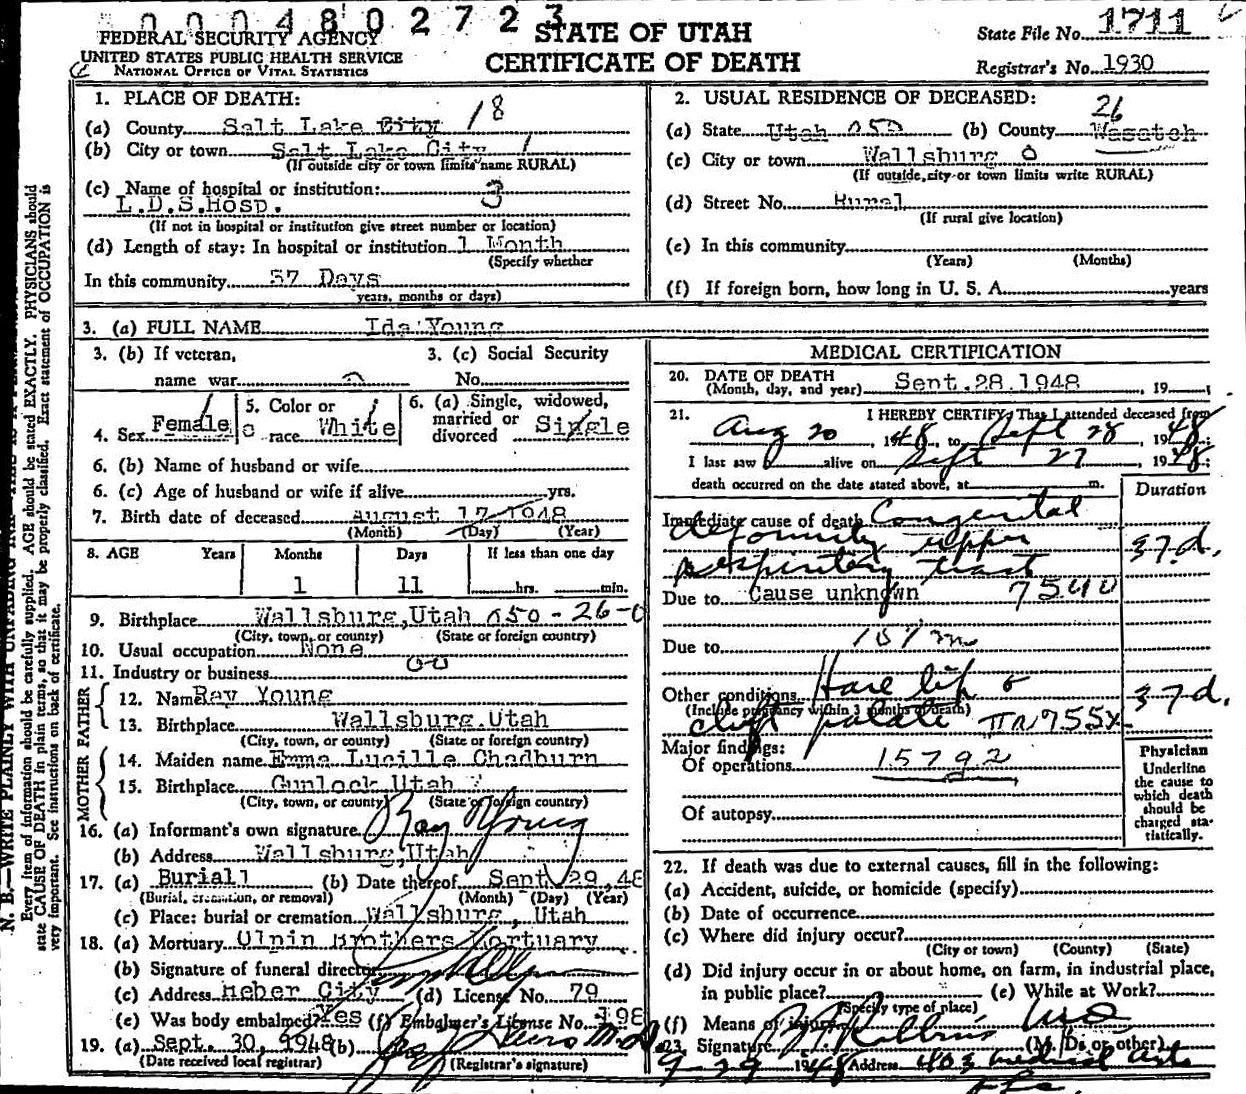 0004802723
FEDERAL SECURITY AGENCY
UNITED STATES PUBLIC HEALTH SERVICE
NATIONAL OFFICE OF VITAL STATISTICS
STATE OF UTAH
CERTIFICATE OF DEATH
State File No. 1711
Registrar's No. 1930
1. PLACE OF DEATH:
(a) County Salt Lake City 18
(b) City or town Salt Lake City
(If outside city or town limits name RURAL)
(c) Name of hospital or institution: 3
L.D.S. Hosp.
(If not in hospital or institution give street number or location)
(d) Length of stay: In hospital or institution 1 Month
(Specify whether
In this community 37 Days
years, months or days)
2. USUAL RESIDENCE OF DECEASED:
26
(a) State Utah 050 (b) County Wasatch
(c) City or town Wallsburg 0
(If outside city or town limits write RURAL)
(d) Street No. Rural
(If rural give location)
(e) In this community
(Years) (Months)
(f) If foreign born, how long in U. S. A. years
3. (a) FULL NAME Ida Young
3. (b) If veteran,
name war
3. (c) Social Security
No.
4. Sex Female
5. Color or
race White
6. (a) Single, widowed,
married or
divorced Single
6. (b) Name of husband or wife
6. (c) Age of husband or wife if alive yrs.
7. Birth date of deceased August 17 1948
(Month) (Day) (Year)
8. AGE Years Months Days If less than one day
1 11 hrs. min.
9. Birthplace Wallsburg, Utah 050-26-0
(City, town, or county) (State or foreign country)
10. Usual occupation None
11. Industry or business 00
FATHER
12. Name Ray Young
13. Birthplace Wallsburg, Utah
(City, town, or county) (State or foreign country)
MOTHER
14. Maiden name Emma Lucille Chadburn
15. Birthplace Gunlock Utah
(City, town, or county) (State or foreign country)
16. (a) Informant's own signature Ray Young
(b) Address Wallsburg, Utah
17. (a) Burial (b) Date thereof Sept 29, 48
(Burial, cremation, or removal) (Month) (Day) (Year)
(c) Place: burial or cremation Wallsburg, Utah
18. (a) Mortuary Olpin Brothers Mortuary
(b) Signature of funeral director
(c) Address Heber City (d) License No. 79
(e) Was body embalmed? Yes (f) Embalmer's License No. 198
19. (a) Sept. 30, 1948 (b)
(Date received local registrar) (Registrar's signature)
MEDICAL CERTIFICATION
20. DATE OF DEATH
(Month, day, and year) Sept. 28, 1948, 19
21. I HEREBY CERTIFY, That I attended deceased from
Aug 20, 1948, to Sept 28, 1948;
I last saw alive on Sept 27, 1948;
death occurred on the date stated above, at m.
Duration
Immediate cause of death Congenital
deformity upper
respiratory tract 37d.
Due to Cause unknown 7540
Due to 157m
Other conditions Hare lip & 37d.
(Include pregnancy within 3 months of death)
cleft palate 755x
Major findings:
Of operations 15792
Of autopsy
Physician
Underline
the cause to
which death
should be
charged sta-
tistically.
22. If death was due to external causes, fill in the following:
(a) Accident, suicide, or homicide (specify)
(b) Date of occurrence
(c) Where did injury occur?
(City or town) (County) (State)
(d) Did injury occur in or about home, on farm, in industrial place,
in public place? (e) While at Work?
(Specify type of place)
(f) Means of injury
23. Signature (M. D. or other)
9-29 1948 Address 403 medical arts
N. B.—WRITE PLAINLY WITH UNFADING INK
Every item of information should be carefully supplied. AGE should be stated EXACTLY. PHYSICIANS should
state CAUSE OF DEATH in plain terms, so that it may be properly classified. Exact statement of OCCUPATION is
very important. See instructions on back of certificate.